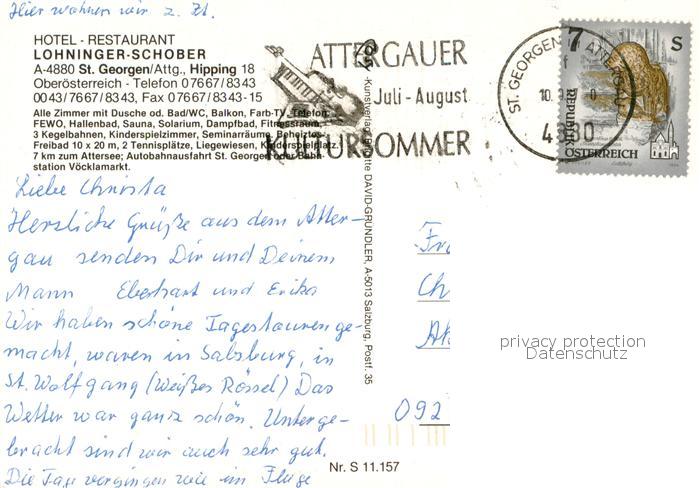 Hier wohnen wir z. Zt.
HOTEL - RESTAURANT
LOHNINGER-SCHOBER
A-4880 St. Georgen/Attg., Hipping 18
Oberösterreich - Telefon 07667/8343
0043/7667/8343, Fax 07667/8343-15
Alle Zimmer mit Dusche od. Bad/WC, Balkon, Farb-TV, Telefon,
FEWO, Hallenbad, Sauna, Solarium, Dampfbad, Fitnessraum,
3 Kegelbahnen, Kinderspielzimmer, Seminarräume, Beheiztes
Freibad 10 x 20 m, 2 Tennisplätze, Liegewiesen, Kinderspielplatz,
7 km zum Attersee; Autobahnausfahrt St. Georgen oder Bahn-
station Vöcklamarkt.
ATTERGAUER
Juli - August
KULTURSOMMER
ST. GEORGEN
4880
7 S
REPUBLIK
ÖSTERREICH
Kunstverlag Brigitte DAVID-GRÜNDLER, A-5013 Salzburg, Postf. 35
Liebe Christa
Herzliche Grüße aus dem Atter-
gau senden Dir und Deinem
Mann Eberhart und Erika
Wir haben schöne Tagestouren ge-
macht, waren in Salzburg, in
St. Wolfgang (Weißes Rössel) Das
Wetter war ganz schön. Unterge-
bracht sind wir auch sehr gut.
Die Tage vergingen wie im Fluge
Fr
Ch
092
privacy protection
Datenschutz
Nr. S 11.157